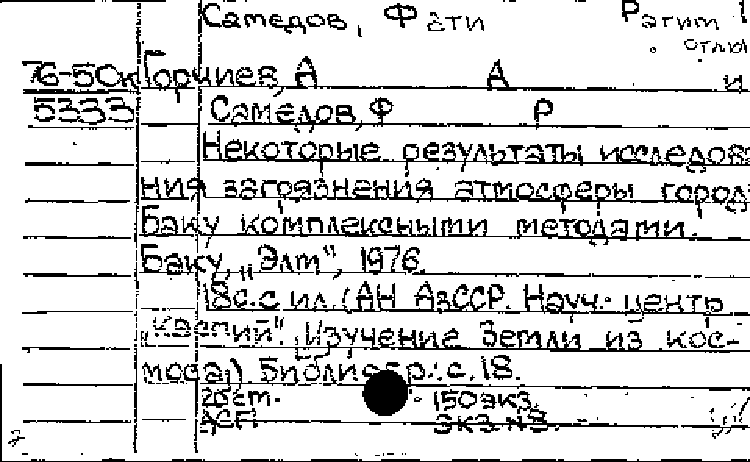 Самедов, Фати Рагим
76-50к Горчиев, А А и
5333 Самедов, Ф Р
Некоторые результаты исследова
ния загрязнения атмосферы города
Баку комплексными методами.
Баку, „Элм", 1976.
18с. с ил. (АН АзССР. Науч. центр
„Каспий". Изучение Земли из кос-
моса) Библиогр.: с. 18.
150 экз.
экз. №3.